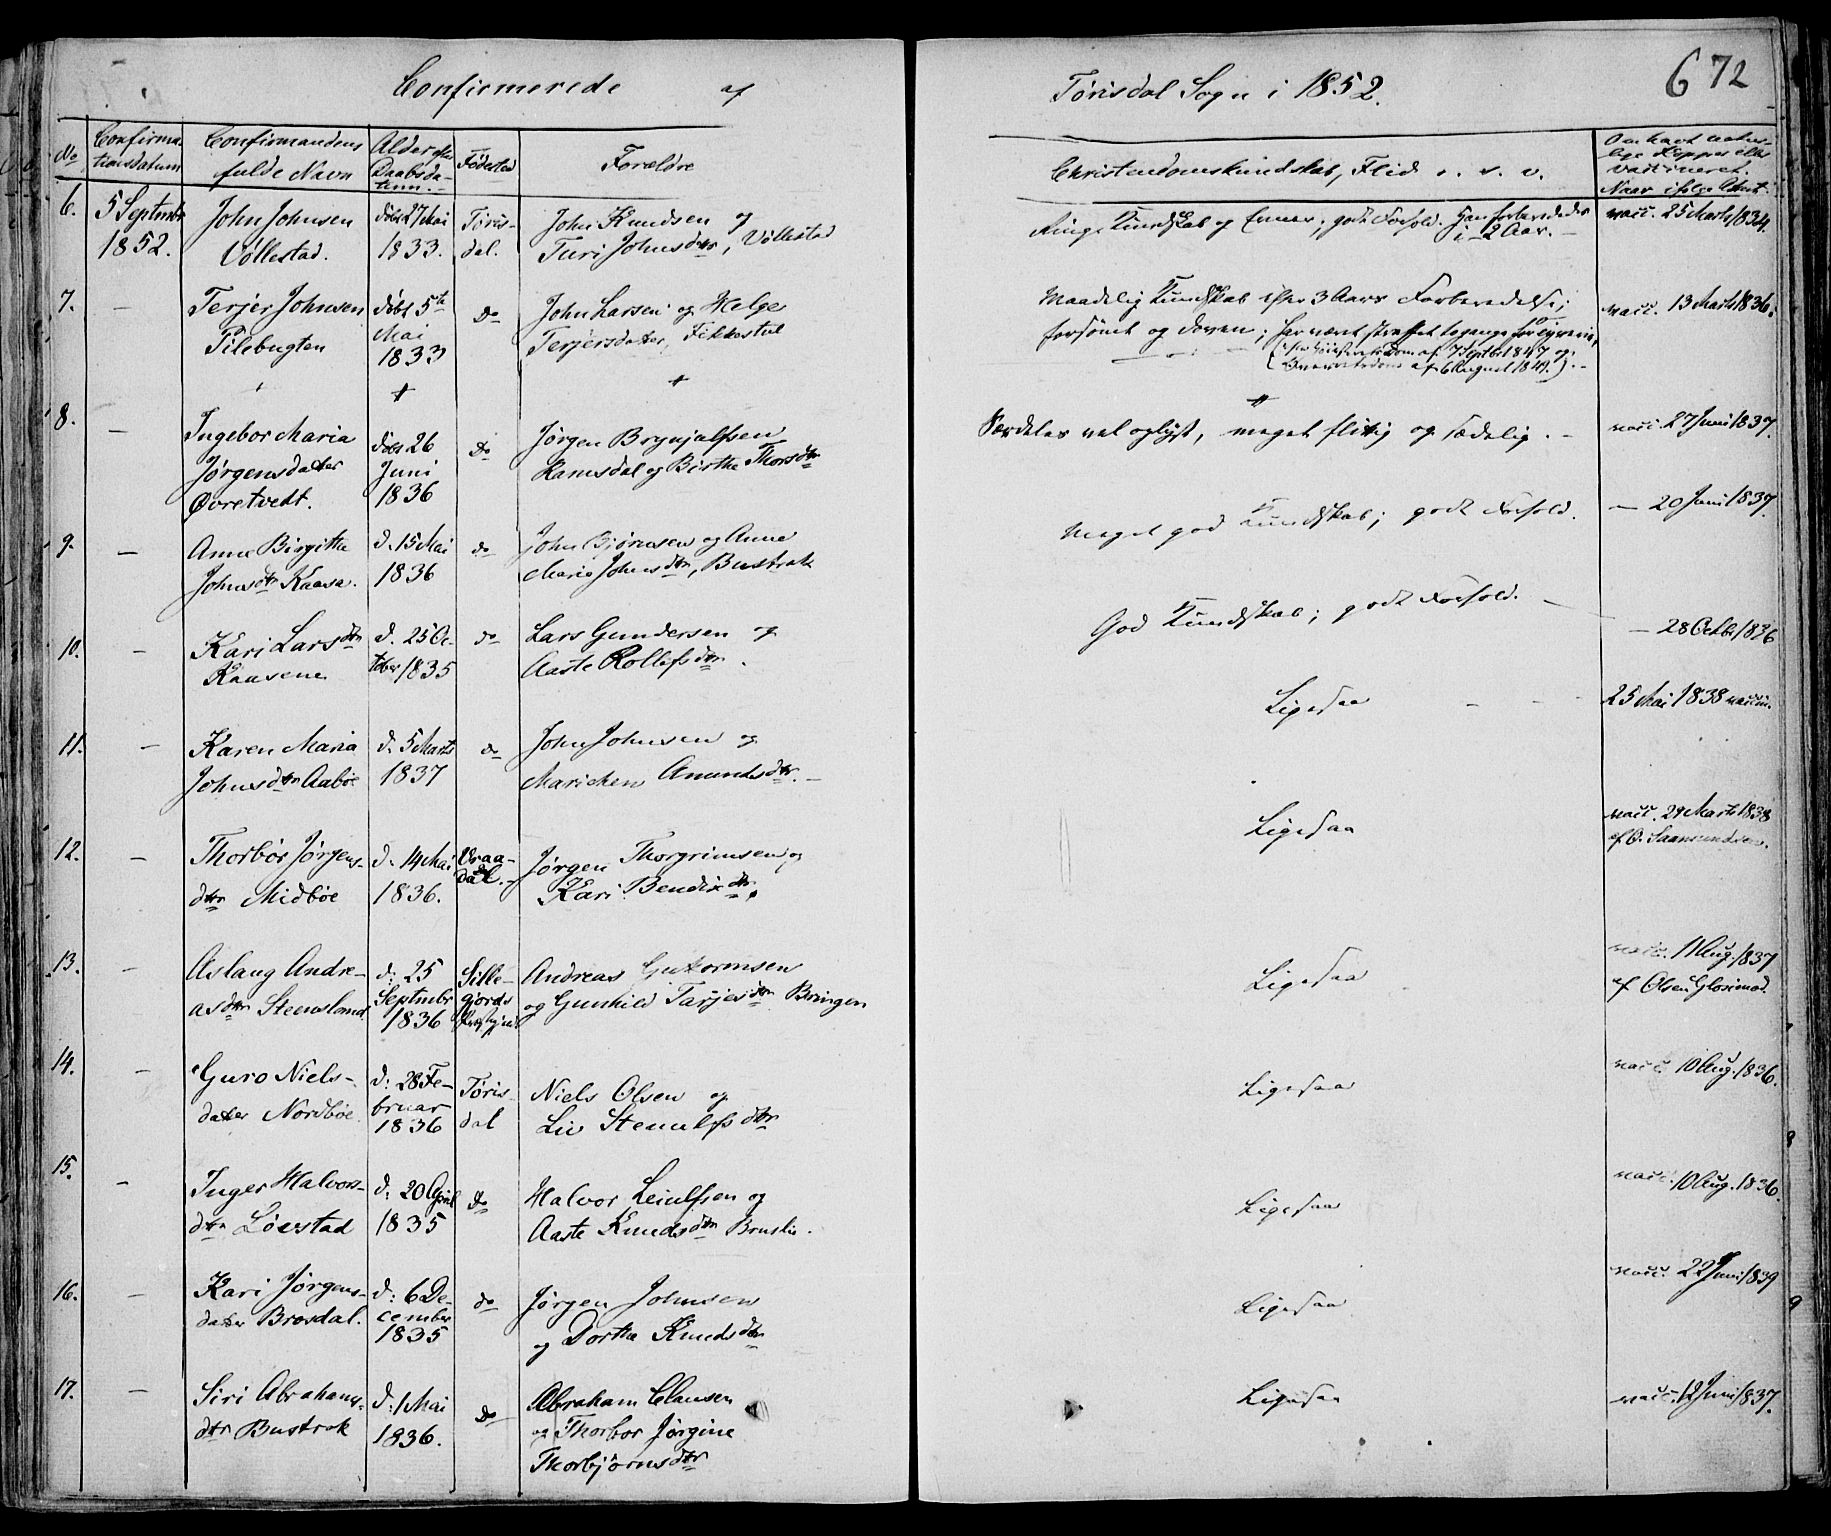 Confirmerede af Tørisdal Sogn i 1852. 672
No
Confirma-
tionsdatum
Confirmandens
fulde Navn
Alder efter
Daabsda-
tum.
Fødested
Forældre
Christendomskundskab, Flid o. s. v.
Om havt natur-
lige Kopper eller
vaccineret.
6.
5 Septmbr
1852.
John Johnsen
Vøllestad.
døbt 27 Mai
1833.
Töris-
dal.
John Knudsen og
Turi Johnsdtr, Vøllestad
Ringe Kundskab og Evner; godt Forhold. Han forberededes
i 2 Aar. –
vacc. 25 Marts 1834.
7.
–
Terjer Johnsen
Pilebugten
døbt 5te
Mai
1833
do
John Larsen og Helge
Terjersdatter, Fikkestøl
Maadelig Kundskab efter 3 Aars Forberedelse;
forsömt og doven; har været straffet to gange for Tyverie,
7 Septbr 1847 og
af 6 August 1849.). –
vacc. 13 Marts 1836.
8.
–
Ingebor Maria
Jørgensdatter
Øvretvedt.
døbt 26
Juni
1836
do
Jørgen Brynjulfsen
Hamsdal og Birthe Thorsdtr
Særdeles vel oplyst, meget flittig og sædelig. –
vacc. 27 Juni 1837.
9.
–
Anne Birgitha
Johnsdtr Kaasa.
d. 15 Mai
1836
do
John Bjørnsen og Anne
Maria Johnsdtr, Bustrak
Meget god Kundskab; godt Forhold.
– 20 Juni 1837.
10.
–
Kari Larsdtr
Kaasene
d. 25 Oc-
tober 1835
do
Lars Gundersen og
Aaste Rollefsdtr.
God Kundskab; godt Forhold. –
– 28 Octbr 1836
11.
–
Karen Maria
Johnsdtr Aabøe
d. 5 Marts
1837
do
John Johnsen og
Marichen Anundsdtr. –
Ligesaa – –
25 Mai 1838 vaccin.
12.
–
Thorbør Jørgens-
dtr Midbøe
d. 14 Mai
1836.
Vraa-
dal. –
Jørgen Thorgrimsen og
Kari Bendixdtr.
Ligesaa
vacc. 29 Marts 1838
af O. Saamundsen.
13.
–
Aslaug Andre-
asdtr Steensland
d: 25
Septmbr
1836
Sille-
gjords
Andreas Gutormsen
og Gunhild Tarjesdtr Bringen
Ligesaa
vacc. 11 Aug. 1837
af Olsen Glosimod.
14.
–
Guro Niels-
datter Nordbøe
d: 28 Fe-
bruar
1836
Töris-
dal
Niels Olsen og
Liv Steinulfsdtr
Ligesaa
vacc. 10 Aug. 1836.
15.
–
Inger Halvors-
dtr Løvstad
d: 20 April
1835
do
Halvor Leiulfsen og
Aaste Knudsdtr Bruslie.
Ligesaa
vacc. 10 Aug. 1836.
16.
–
Kari Jørgens-
datter Brosdal.
d: 6 De-
cember
1835
do
Jørgen Johnsen
og Dorthe Knudsdtr
Ligesaa
vacc. 22 Juni 1839
17.
–
Siri Abrahams-
dtr Bustrak
d: 1 Mai
1836.
do
Abraham Clausen
og Thorbor Jørgine
Thorbjørnsdtr
Ligesaa
vacc. 12 Juni 1837.